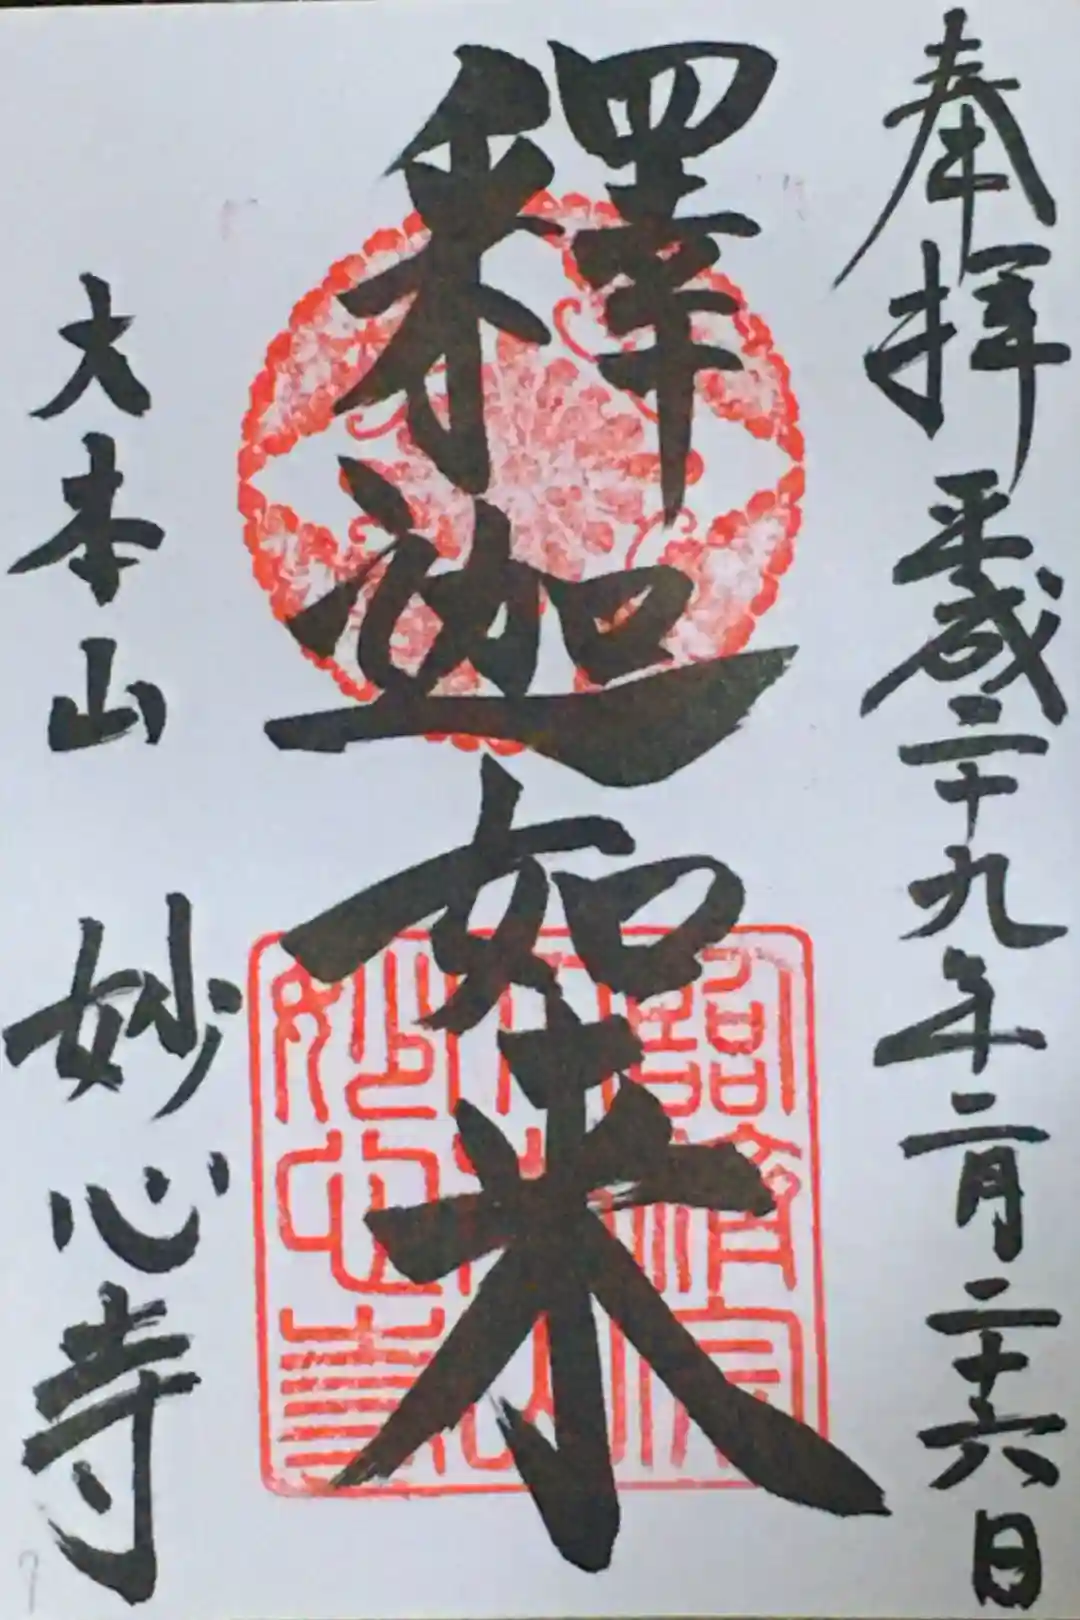 奉拝 平成二十九年二月二十六日
釋迦如来
大本山 妙心寺